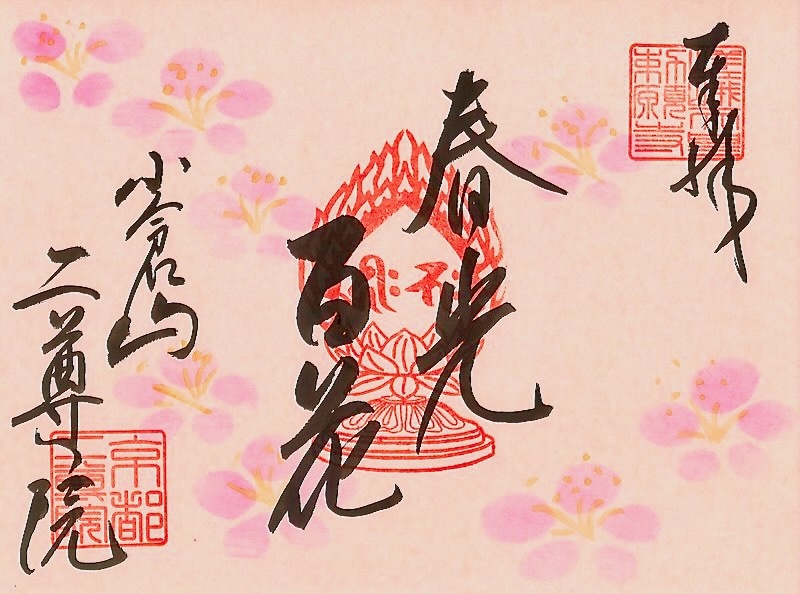 奉拝
春光
百花
小倉山
二尊院
京都
二尊院